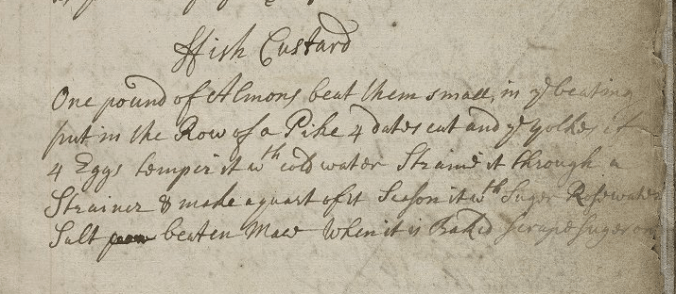 ffish Custard
One pound of Almons beat them small, in ye beating
put in the Row of a Pike 4 dates cut and ye yolkes of
4 Eggs temper it wth cold water Straine it through a
Strainer & make a quart of it Season it wth Suger Rosewater
Salt beaten Mace When it is Baked Scrape Suger on